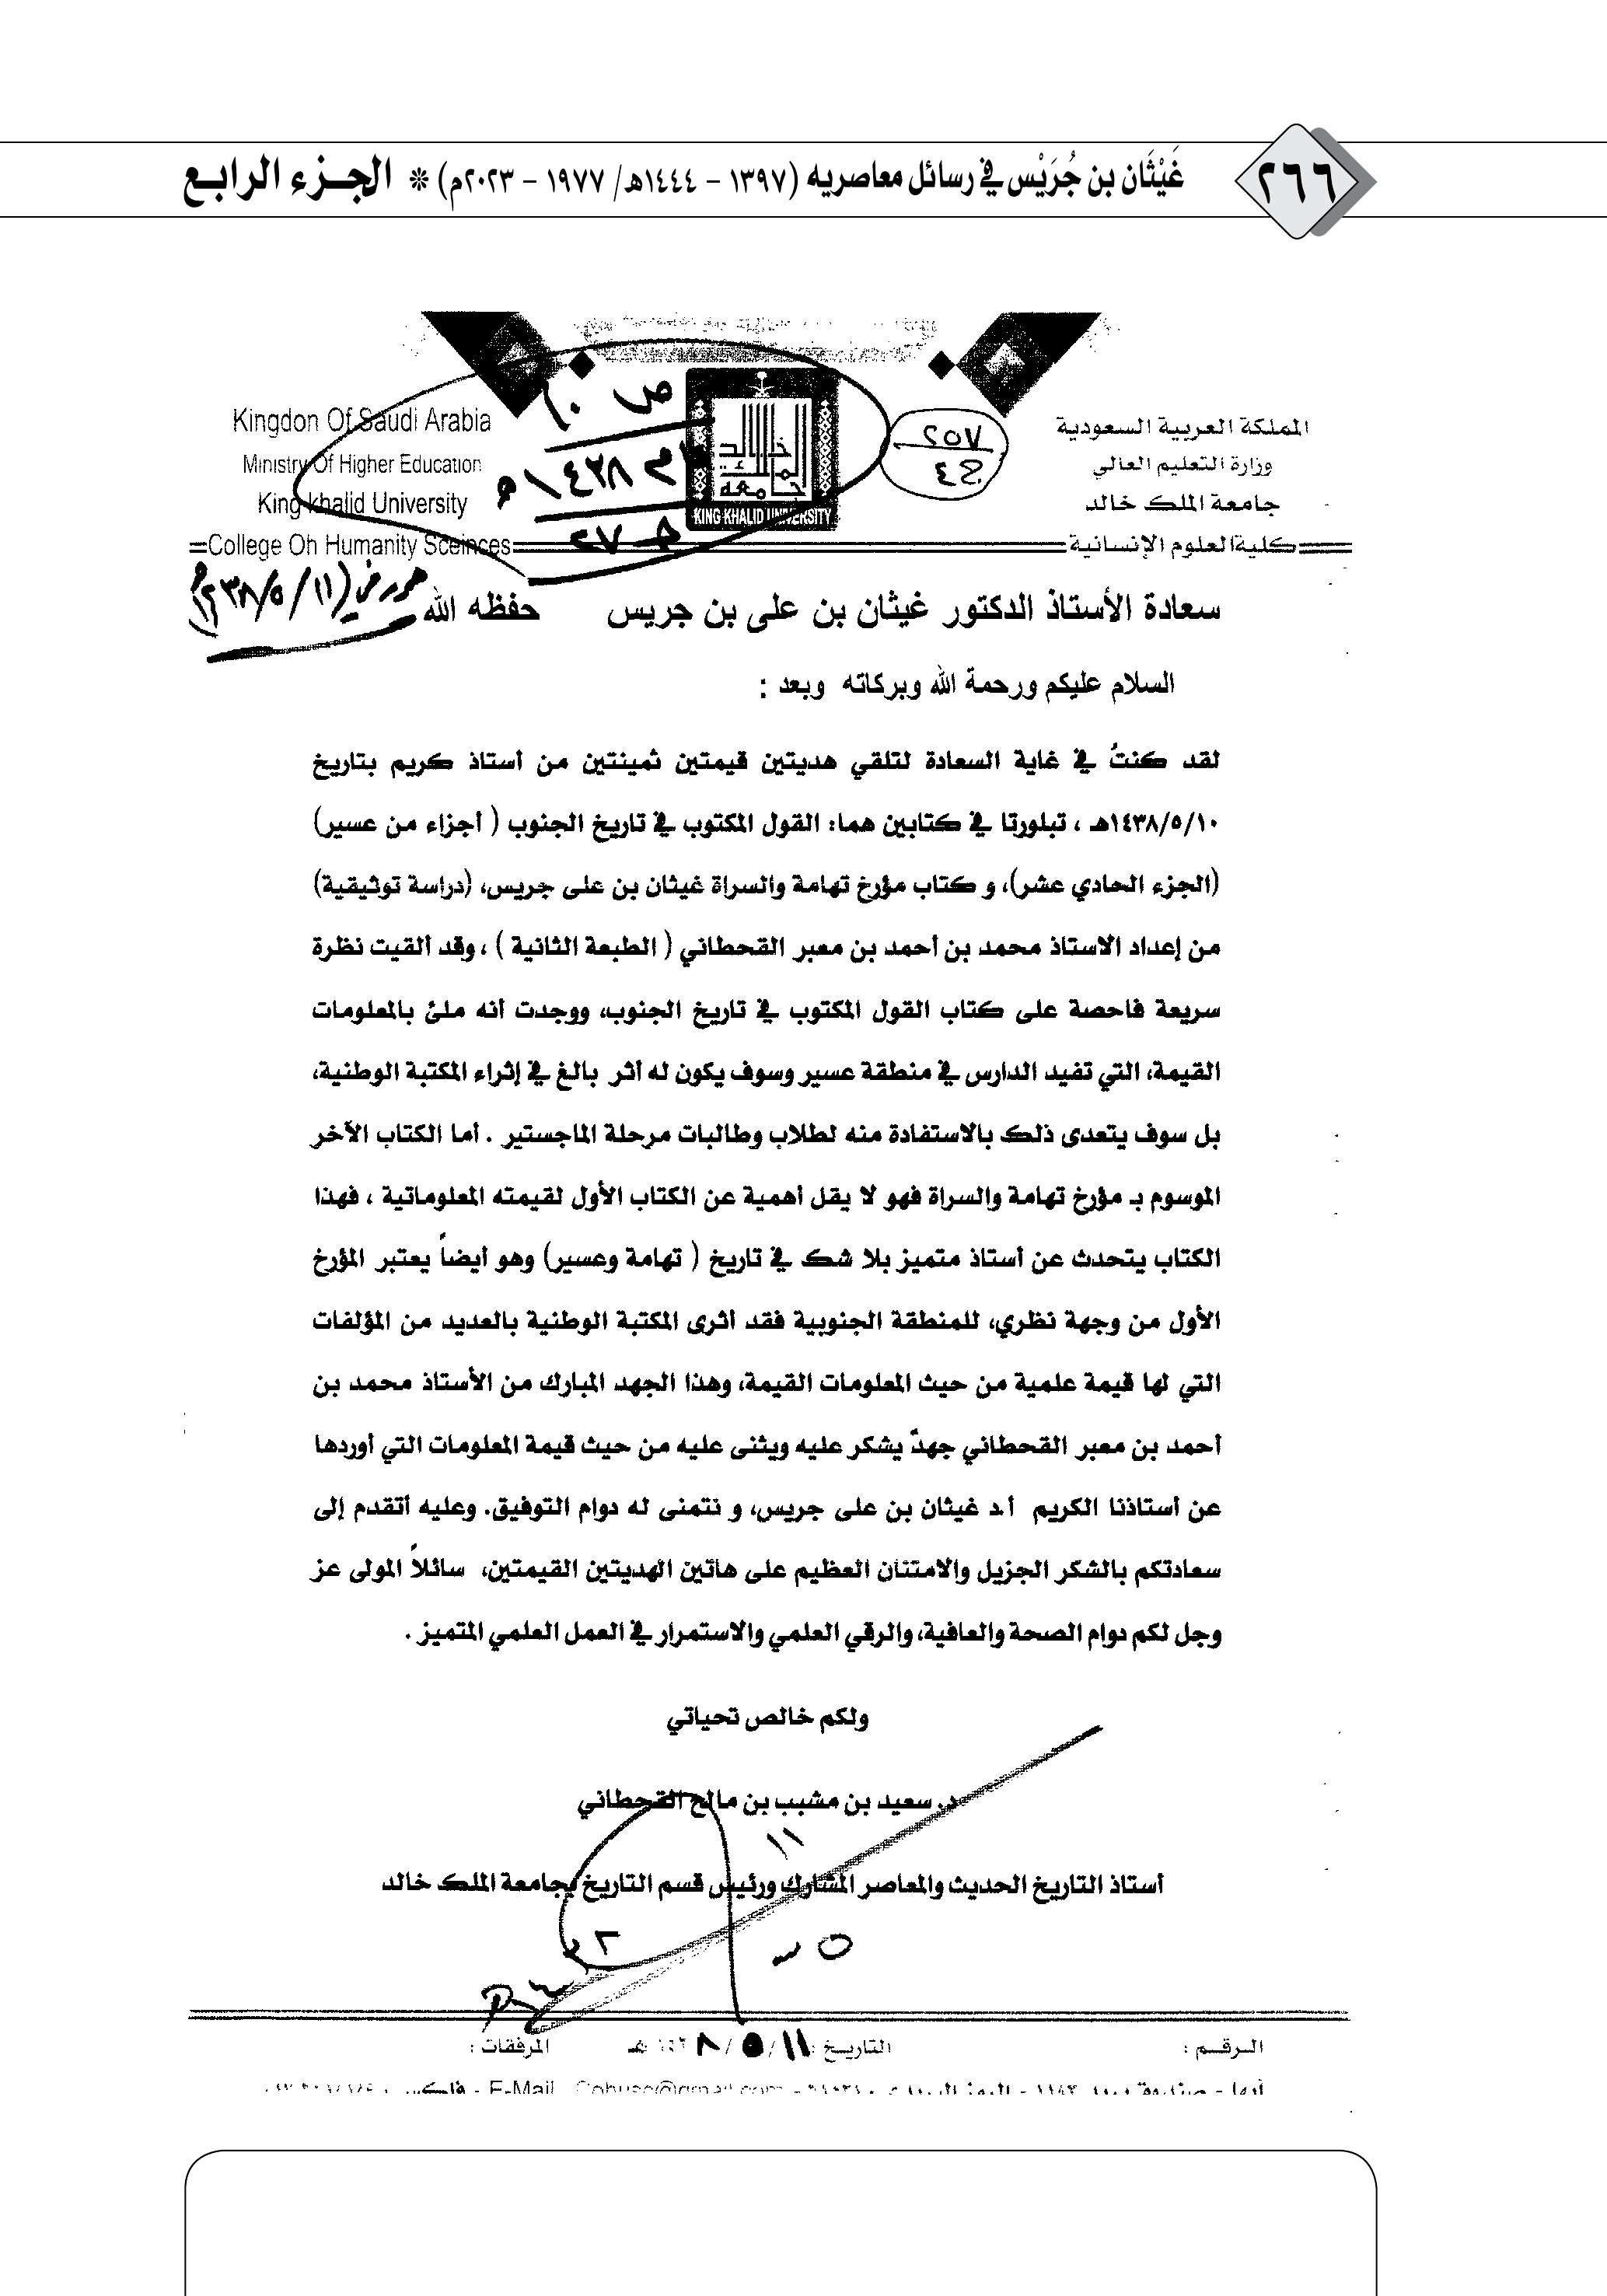 ٢٦٦
غَيْثَان بن جُرَيْس في رسائل معاصريه (١٣٩٧ - ١٤٤٤هـ/ ١٩٧٧ - ٢٠٢٣م) * الجـزء الرابـع
المملكة العربية السعودية
وزارة التعليم العالي
جامعة الملك خالد
كلية العلوم الإنسانية
٢٥٧
ج٤
KING KHALID UNIVERSITY
Kingdon Of Saudi Arabia
Ministry Of Higher Education
King khalid University
College Oh Humanity Sceinces
سعادة الأستاذ الدكتور غيثان بن على بن جريس حفظه الله
السلام عليكم ورحمة الله وبركاته وبعد :
لقد كنتُ في غاية السعادة لتلقي هديتين قيمتين ثمينتين من أستاذ كريم بتاريخ
١٤٣٨/٥/١٠هـ ، تبلورتا في كتابين هما: القول المكتوب في تاريخ الجنوب ( أجزاء من عسير)
(الجزء الحادي عشر)، و كتاب مؤرخ تهامة والسراة غيثان بن على جريس، (دراسة توثيقية)
من إعداد الاستاذ محمد بن أحمد بن معبر القحطاني ( الطبعة الثانية ) ، وقد ألقيت نظرة
سريعة فاحصة على كتاب القول المكتوب في تاريخ الجنوب، ووجدت أنه ملئ بالمعلومات
القيمة، التي تفيد الدارس في منطقة عسير وسوف يكون له أثر بالغ في إثراء المكتبة الوطنية،
بل سوف يتعدى ذلك بالاستفادة منه لطلاب وطالبات مرحلة الماجستير . أما الكتاب الآخر
الموسوم بـ مؤرخ تهامة والسراة فهو لا يقل أهمية عن الكتاب الأول لقيمته المعلوماتية ، فهذا
الكتاب يتحدث عن أستاذ متميز بلا شك في تاريخ ( تهامة وعسير) وهو أيضاً يعتبر المؤرخ
الأول من وجهة نظري، للمنطقة الجنوبية فقد أثرى المكتبة الوطنية بالعديد من المؤلفات
التي لها قيمة علمية من حيث المعلومات القيمة، وهذا الجهد المبارك من الأستاذ محمد بن
أحمد بن معبر القحطاني جهدً يشكر عليه ويثنى عليه من حيث قيمة المعلومات التي أوردها
عن أستاذنا الكريم أ.د غيثان بن على جريس، و نتمنى له دوام التوفيق. وعليه أتقدم إلى
سعادتكم بالشكر الجزيل والامتنان العظيم على هاتين الهديتين القيمتين، سائلاً المولى عز
وجل لكم دوام الصحة والعافية، والرقي العلمي والاستمرار في العمل العلمي المتميز .
ولكم خالص تحياتي
د. سعيد بن مشبب بن مالح القحطاني
أستاذ التاريخ الحديث والمعاصر المشارك ورئيس قسم التاريخ بجامعة الملك خالد
الـرقـم : التاريـخ : ١١/ ٥ / ١٤٣٨ هـ المرفقات :